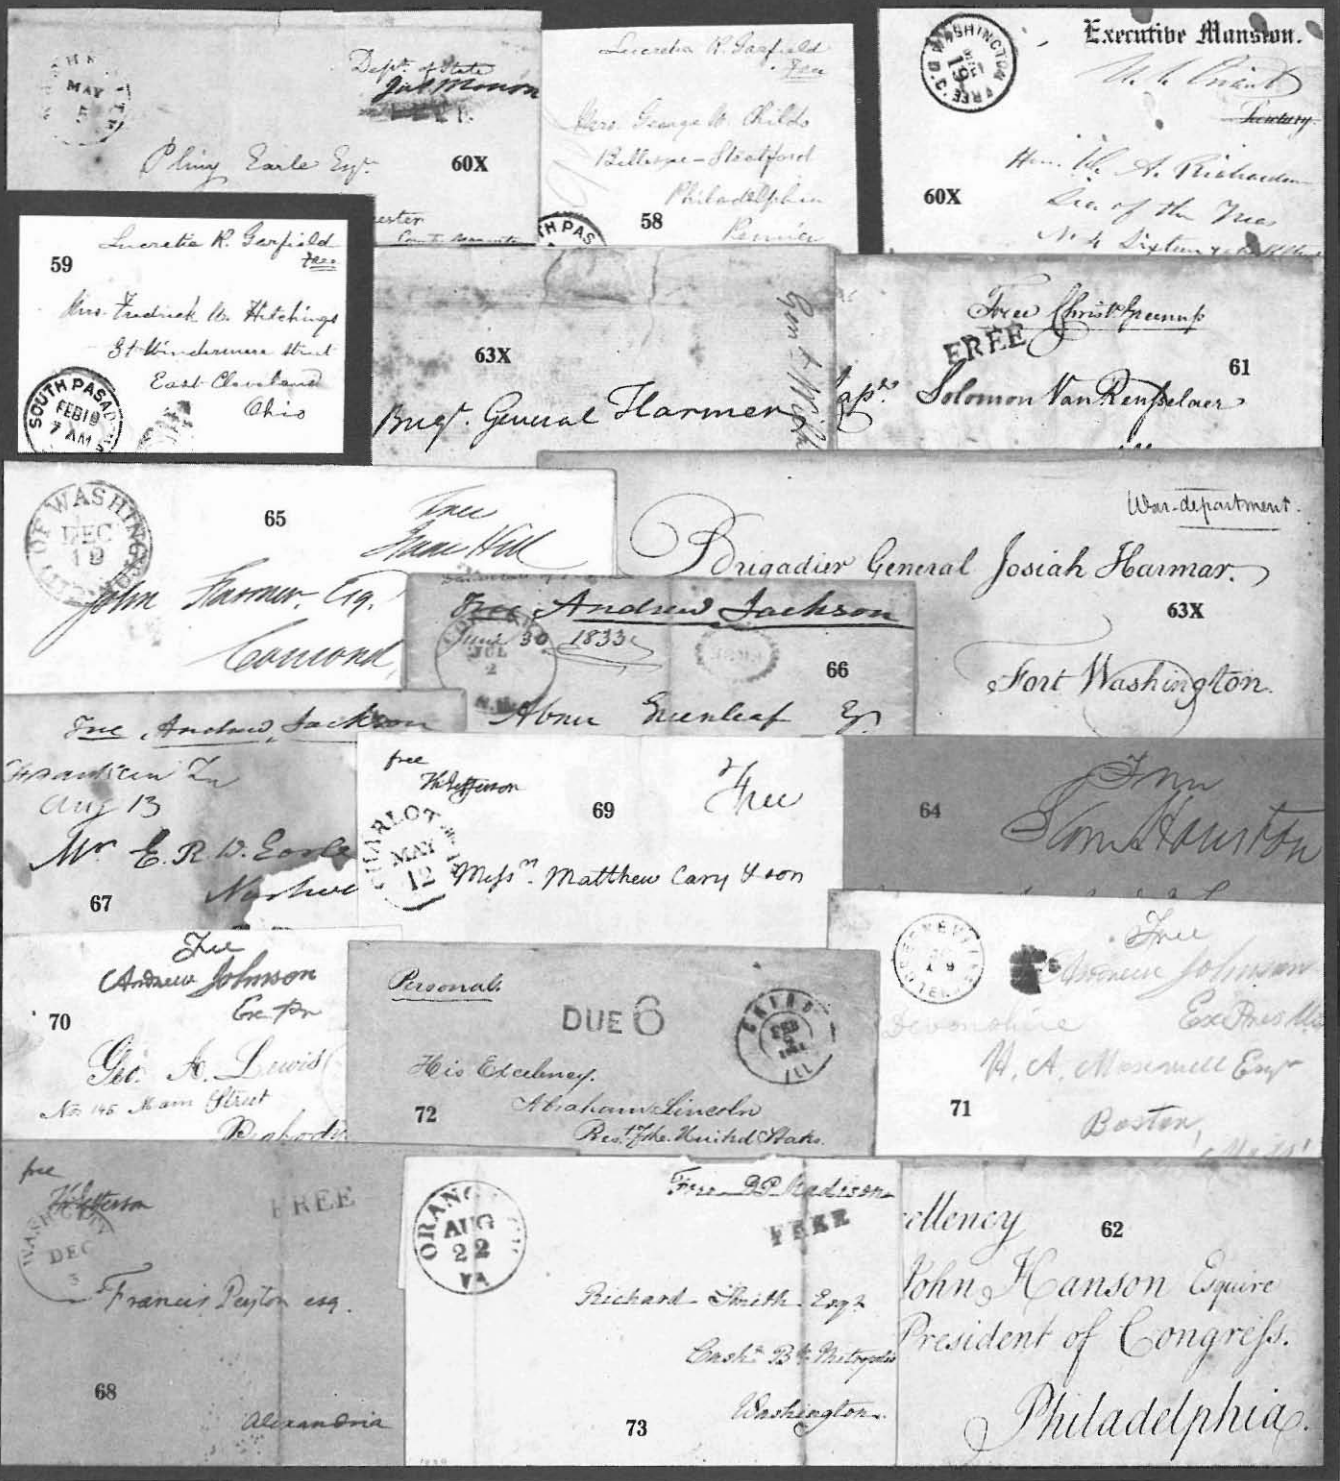 MAY
5
Dept. of State
Jas Monroe
FREE
Pliny Earle Esqr.
60X
Lucretia R. Garfield
Free
Mrs. George W. Childs
Philadelphia
58
TH PAS
WASHINGTON
D.C.
FREE
19
Executive Mansion.
U. S. Grant
Hon. W. A. Richardson
Sec. of the Treas
60X
Lucretia R. Garfield
Free
59
Mrs. Fredrick W. Hitchings
Windermere Street
East Cleveland
Ohio
SOUTH PASAD
FEB 19
7 AM
63X
Brigr. General Harmer
Free Christ Greenup
FREE
61
Capt. Solomon Van Renſselaer
CITY OF WASHINGTON
DEC
19
65
Free
Isaac Hill
John Farmer. Esq.
Concord
War-department.
Brigadier General Josiah Harmar.
63X
Fort Washington.
Free Andrew Jackson
June 30 1833
JUL
2
66
Abner Greenleaf Esqr
Free Andrew Jackson
Franklin Tn
Aug 13
Mr E. R. W. Earle
67
free
Th. Jefferson
Free
69
CHARLOT
MAY
12
Messrs. Matthew Cary & son
Free
64
Sam Houston
Free
Andrew Johnson
Ex Pr
70
Geo. A. Lewis
No 145 Main Street
Peabody
Personal.
DUE 6
CHICAGO
FEB
ILL
His Excelency.
72
Abraham Lincoln
Prest. of the United States.
GREENEVILLE
9
Free
Andrew Johnson
Devonshire
Ex Pres
H. A.
Esqr
71
Boston,
free
Th Jefferson
FREE
WASH CITY
DEC
3
Francis Peyton esq.
68
Alexandria
ORANGE
AUG
22
VA
Free D P Madison
FREE
Richard Smith Esqr
Cashr Bk Metropolis
73
Washington.
cellency
62
John Hanson Esquire
President of Congreſs.
Philadelphia.